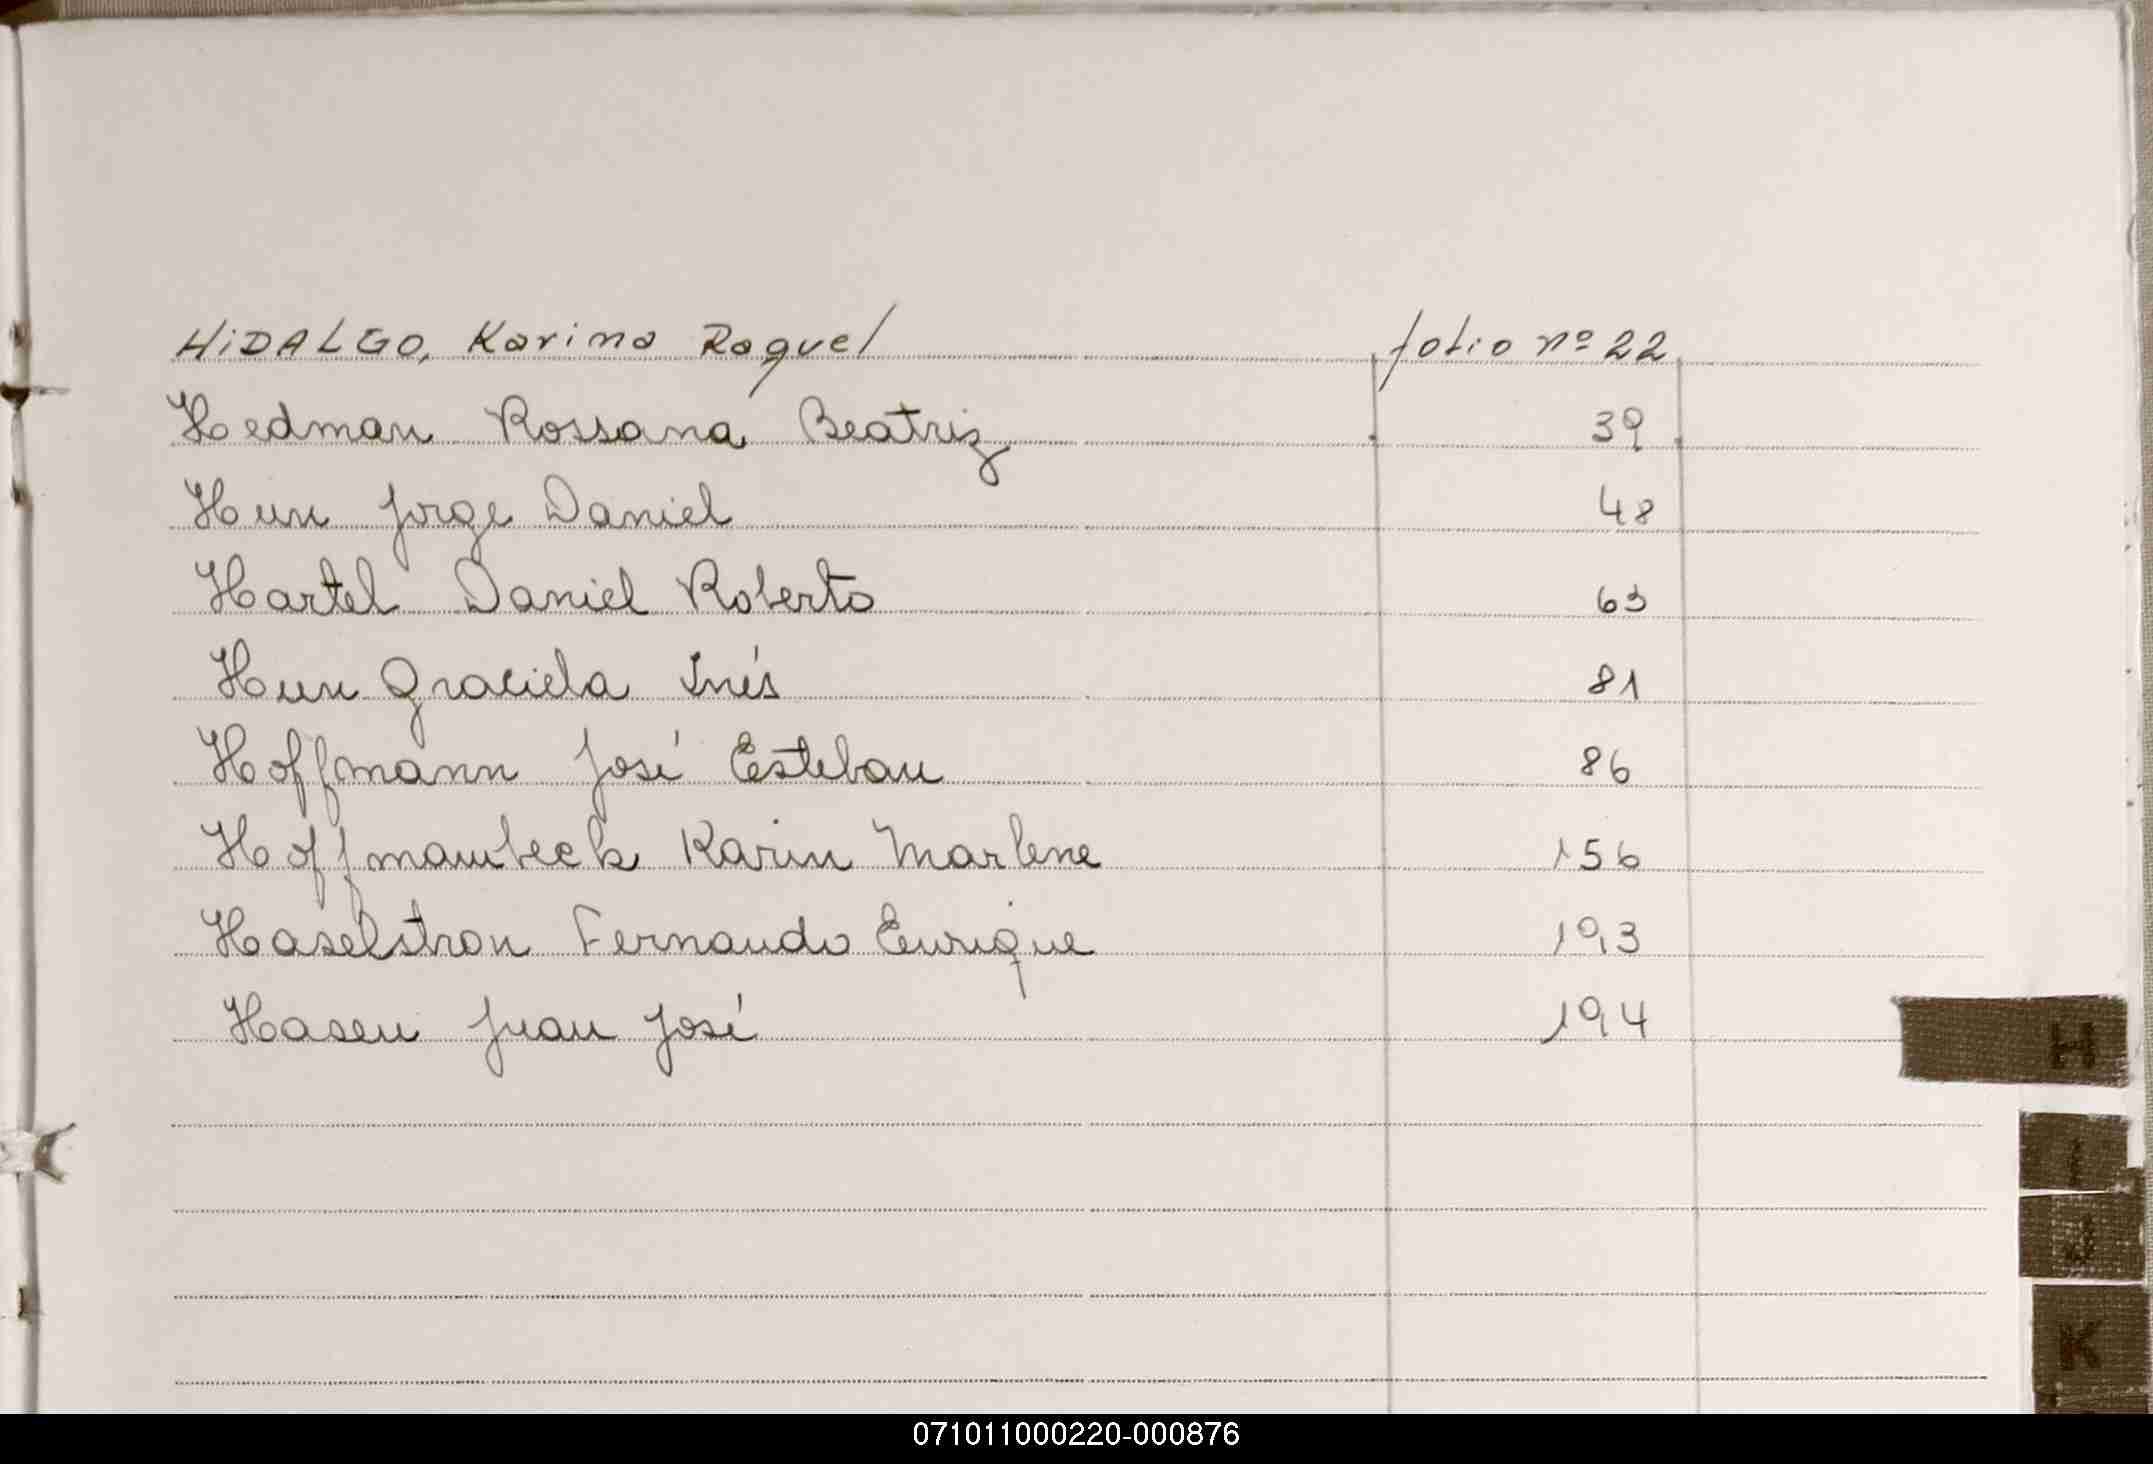 HiDALGO, Karina Raquel folio nº 22
Hedman Rossana Beatriz 39
Hun Jorge Daniel 48
Hartel Daniel Roberto 63
Hun Graciela Inés 81
Hoffmann José Esteban 86
Hoffmanbeck Karin Marlene 156
Haselstron Fernando Enrique 193
Hasen Juan José 194
H
I
J
K
071011000220-000876